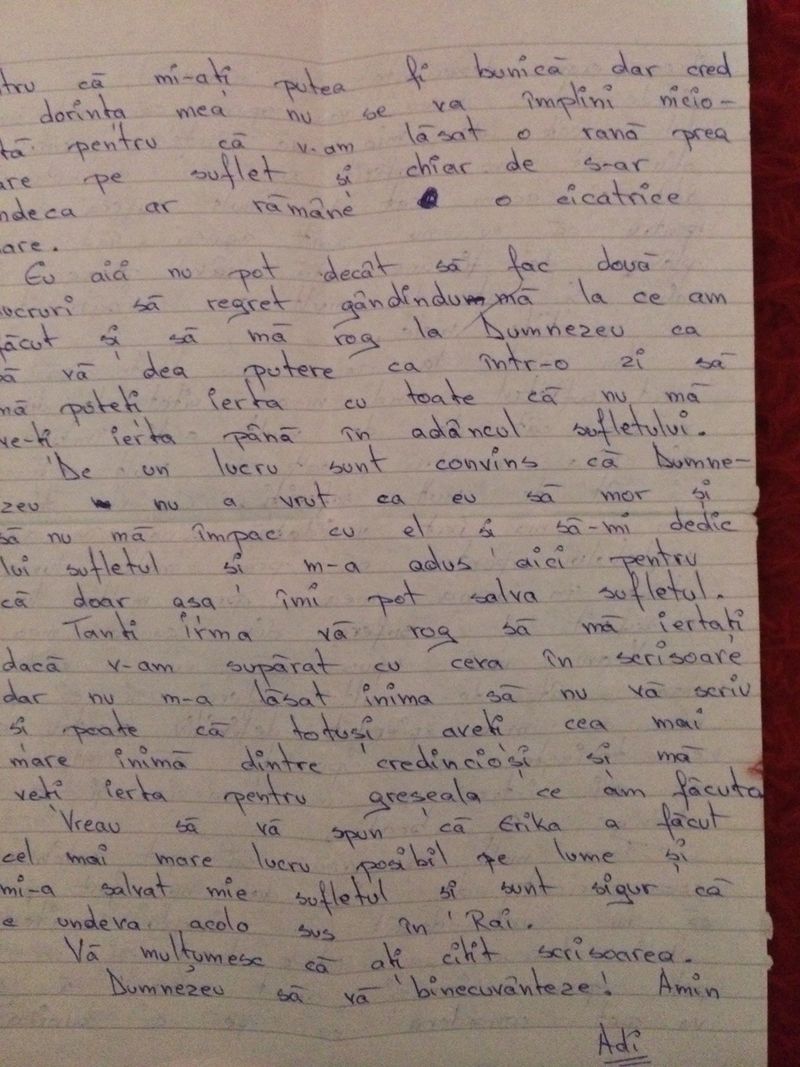 tru că mi-ati putea fi bunică dar cred
dorința mea nu se va împlini nicio-
tă pentru că v-am lăsat o rană prea
are pe suflet și chiar de s-ar
ndeca ar rămâne o cicatrice
are.
Eu aiă nu pot decât să fac două
ucruri să regret gândindu mă la ce am
făcut și să mă rog la Dumnezeu ca
să vă dea putere ca într-o zi să
mă puteti ierta cu toate că nu mă
ve-ti ierta până în adâncul sufletului.
De un lucru sunt convins că Dumne-
zeu nu a vrut ca eu să mor și
să nu mă împac cu el și să-mi dedic
lui sufletul și m-a adus aici pentru
că doar așa îmi pot salva sufletul.
Tanti irma vă rog să mă iertati
dacă v-am supărat cu ceva în scrisoare
dar nu m-a lăsat inima să nu vă scriu
și poate că totuși aveti cea mai
mare inimă dintre credincioși și mă
veti ierta pentru greseala ce am făcuta
Vreau să vă spun că Erika a făcut
cel mai mare lucru posibil pe lume și
mi-a salvat mie sufletul și sunt sigur că
e undeva acolo sus în Rai.
Vă mulțumesc că ati citit scrisoarea.
Dumnezeu să vă binecuvânteze! Amin
Adi